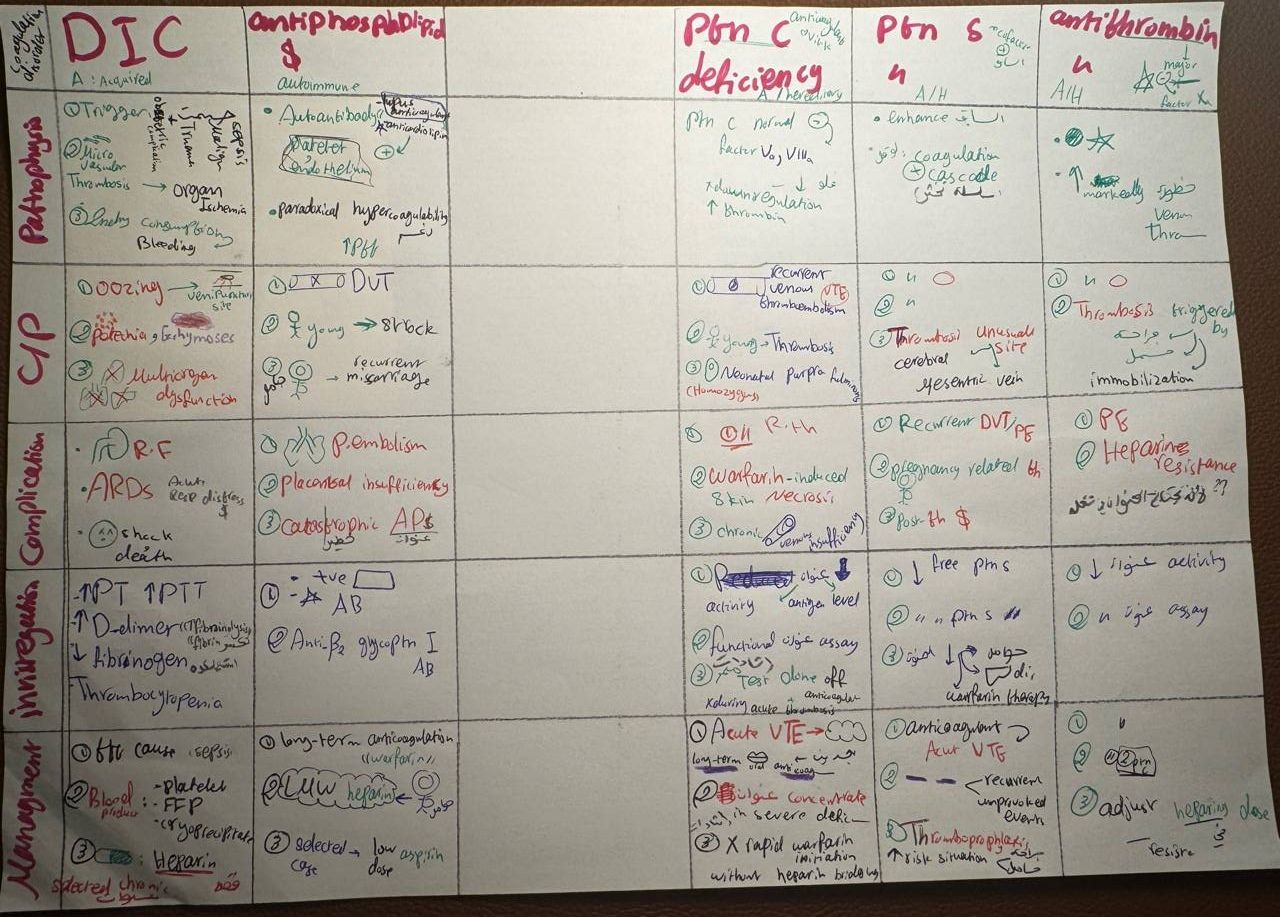 Coagulation disorders
DIC
A: Acquired
antiphospholipid
$
autoimmune
Ptn C
deficiency
A/hereditary
Ptn S
"
A/H
antithrombin
"
A/H
major
factor Xa
Pathophysis
① Trigger
sepsis
Malign
Trauma
obstetric complication
② Micro
vascular
Thrombosis → organ
Ischemia
③
consumption
Bleeding
• Autoantibody
lupus
anticoagulant
anticardiolipin
platelet
endothelium
+
• paradoxical hypercoagulability
رغم
↑PTT
Ptn C normal
factor Va, VIIIa
downregulation
↑ thrombin
• enhance
coagulation
+ cascade
• ↑ markedly خطورة
venous
thro
C/P
① Oozing →
venipuncture
site
② petechia, Ecchymoses
③ Multiorgan
dysfunction
① DVT
② young → stroke
③ recurrent
→ miscarriage
① recurrent
venous VTE
thromboembolism
② young → Thrombosis
③ Neonatal purpra fulminans
(Homozygous)
① "
② "
③ Thrombosis unusual
site
cerebral
mesentric vein
① "
② Thrombosis triggered
by
جراحة
حمل
immobilization
Complication
• R.F
• ARDs Acute
Resp distress
$
• shock
death
① P.embolism
② placental insufficiency
③ catastrophic APS
خطير
① R.th
② warfarin-induced
skin necrosis
③ chronic
venous insufficiency
① Recurrent DVT/PE
② pregnancy related th
③ Post-th $
① PE
② Heparine
resistance
invitregation
-↑PT ↑PTT
-↑ D-dimer "↑fibrinolysis"
"fibrin تكسر"
-↓ fibrinogen
-Thrombocytopenia
① - +ve
- AB
② Anti-β2 glycoptn I
AB
① عنوان ↓
activity antigen level
② functional عنوان assay
③ Test done off
anticoagulant
x during acute thrombosis
① ↓ free ptn s
② " " ptn s "
③ ↓ حوامل
warfarin therapy
① ↓ عنوان activity
② " عنوان assay
Managment
① ttt cause : sepsis
② Blood
product :
-platelet
-FFP
-cryoprecipitate
③ : Heparin
selected chronic
① long-term anticoagulation
"warfarin"
② LMW heparin
حامل
③ selected → low aspirin
case dose
① Acute VTE →
long-term oral anticoag
② عنوان concentrate
in severe defic
③ X rapid warfarin
initiation
without heparin bridging
① anticoagulant
Acut VTE
② recurrent
unprovoked
event
③ Thromboprophylaxis
↑ risk situation
جراحة
حامل
① "
② " 2 ptn
③ adjust heparine dose
resiste